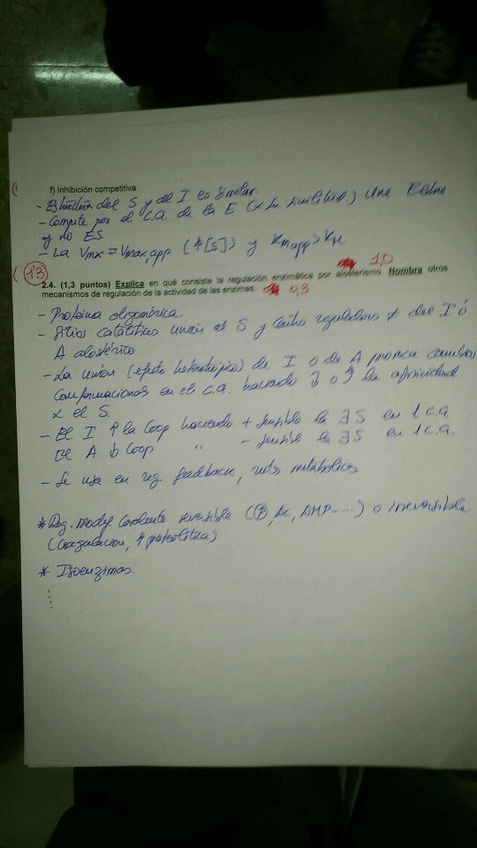 f) Inhibición competitiva
- Estructura del S y del I es similar.
- Compite por el c.a. de la E (x su similitud) une E libre
y no ES
- La Vmx = Vmax,app (↑[S]) y Kmapp > KM
1,0
13
2.4. (1,3 puntos) Explica en qué consiste la regulación enzimática por alosterismo. Nombra otros
mecanismos de regulación de la actividad de las enzimas. 0,3
- Proteína oligomérica.
- Sitios catalíticos unión el S y centros reguladores x del I ó
A alostérico
- La unión (efecto heterotrópico) de I o de A provoca cambios
conformacionales en el c.a. haciendo ↓ o ↑ la afinidad
x el S.
- El I ↑ la Coop haciendo + sensible la S en 1 c.a
El A ↓ Coop " - sensible la S en 1 c.a.
- Se usa en reg. feedback, rutas metabólicas
* Reg. modif Covalente reversible (P, Ac, AMP...) o irreversible
(Coagulación, proteolítica)
* Isoenzimas.